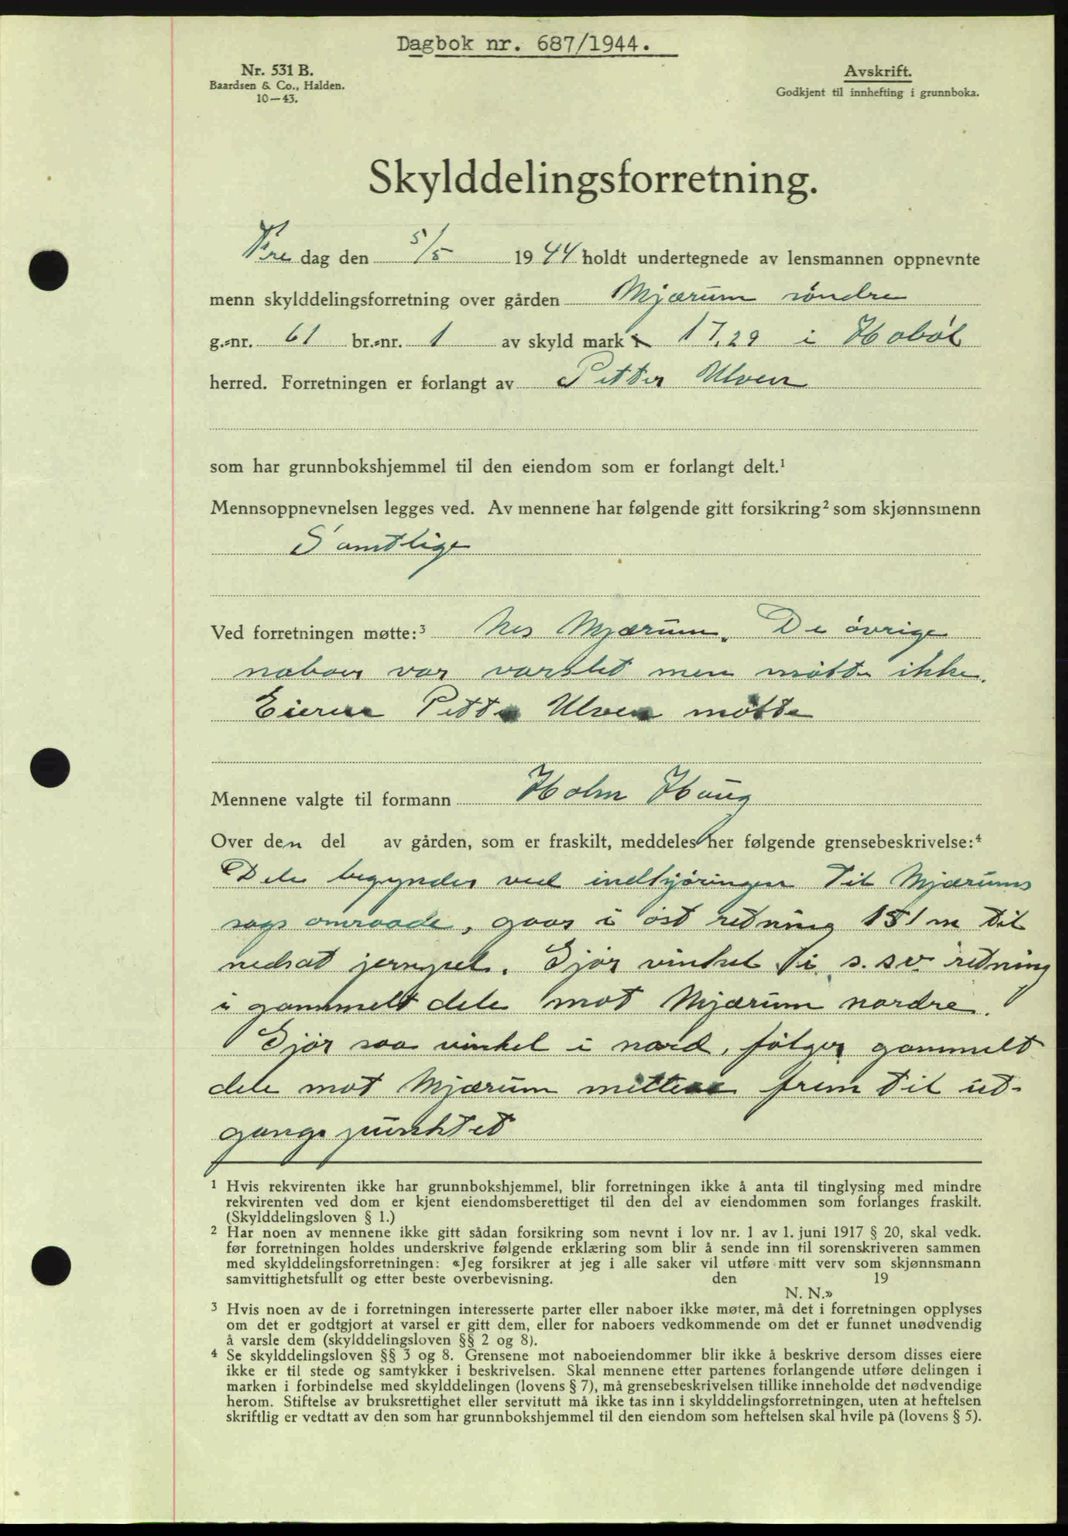 Dagbok nr. 687/1944.
Nr. 531 B.
Baardsen & Co., Halden.
10—43.
Avskrift.
Godkjent til innhefting i grunnboka.
Skylddelingsforretning.
Fre dag den 5/5 1944 holdt undertegnede av lensmannen oppnevnte
menn skylddelingsforretning over gården Mjærum söndre
g.-nr. 61 br.-nr. 1 av skyld mark 17,29 i Hoböl
herred. Forretningen er forlangt av Petter Ulven
som har grunnbokshjemmel til den eiendom som er forlangt delt.¹
Mennsoppnevnelsen legges ved. Av mennene har følgende gitt forsikring² som skjønnsmenn
Samtlige
Ved forretningen møtte:³ Nes Mjærum. De övrige
naboer var varslet men mötte ikke.
Eieren Petter Ulven mötte
Mennene valgte til formann Holm Haug
Over den del av gården, som er fraskilt, meddeles her følgende grensebeskrivelse:⁴
Dele begynder ved indkjöringen til Mjærums
sags omraade, gaar i öst retning 151 m til
nedsat jernpel. Gjör vinkel i s.sv. retning
i gammelt dele mot Mjærum nordre.
Gjör saa vinkel i nord, fölger gammelt
dele mot Mjærum mittere frem til ut-
gangspunktet
¹ Hvis rekvirenten ikke har grunnbokshjemmel, blir forretningen ikke å anta til tinglysing med mindre
rekvirenten ved dom er kjent eiendomsberettiget til den del av eiendommen som forlanges fraskilt.
(Skylddelingsloven § 1.)
² Har noen av mennene ikke gitt sådan forsikring som nevnt i lov nr. 1 av 1. juni 1917 § 20, skal vedk.
før forretningen holdes underskrive følgende erklæring som blir å sende inn til sorenskriveren sammen
med skylddelingsforretningen: «Jeg forsikrer at jeg i alle saker vil utføre mitt verv som skjønnsmann
samvittighetsfullt og etter beste overbevisning. den 19
N. N.»
³ Hvis noen av de i forretningen interesserte parter eller naboer ikke møter, må det i forretningen opplyses
om det er godtgjort at varsel er gitt dem, eller for naboers vedkommende om det er funnet unødvendig
å varsle dem (skylddelingsloven §§ 2 og 8).
⁴ Se skylddelingsloven §§ 3 og 8. Grensene mot naboeiendommer blir ikke å beskrive dersom disses eiere
ikke er til stede og samtykker i beskrivelsen. Skal mennene etter partenes forlangende utføre delingen i
marken i forbindelse med skylddelingen (lovens § 7), må grensebeskrivelsen tillike inneholde det nødvendige
herom. Stiftelse av bruksrettighet eller servitutt må ikke tas inn i skylddelingsforretningen, uten at heftelsen
skriftlig er vedtatt av den som har grunnbokshjemmel til den eiendom som heftelsen skal hvile på (lovens § 5).